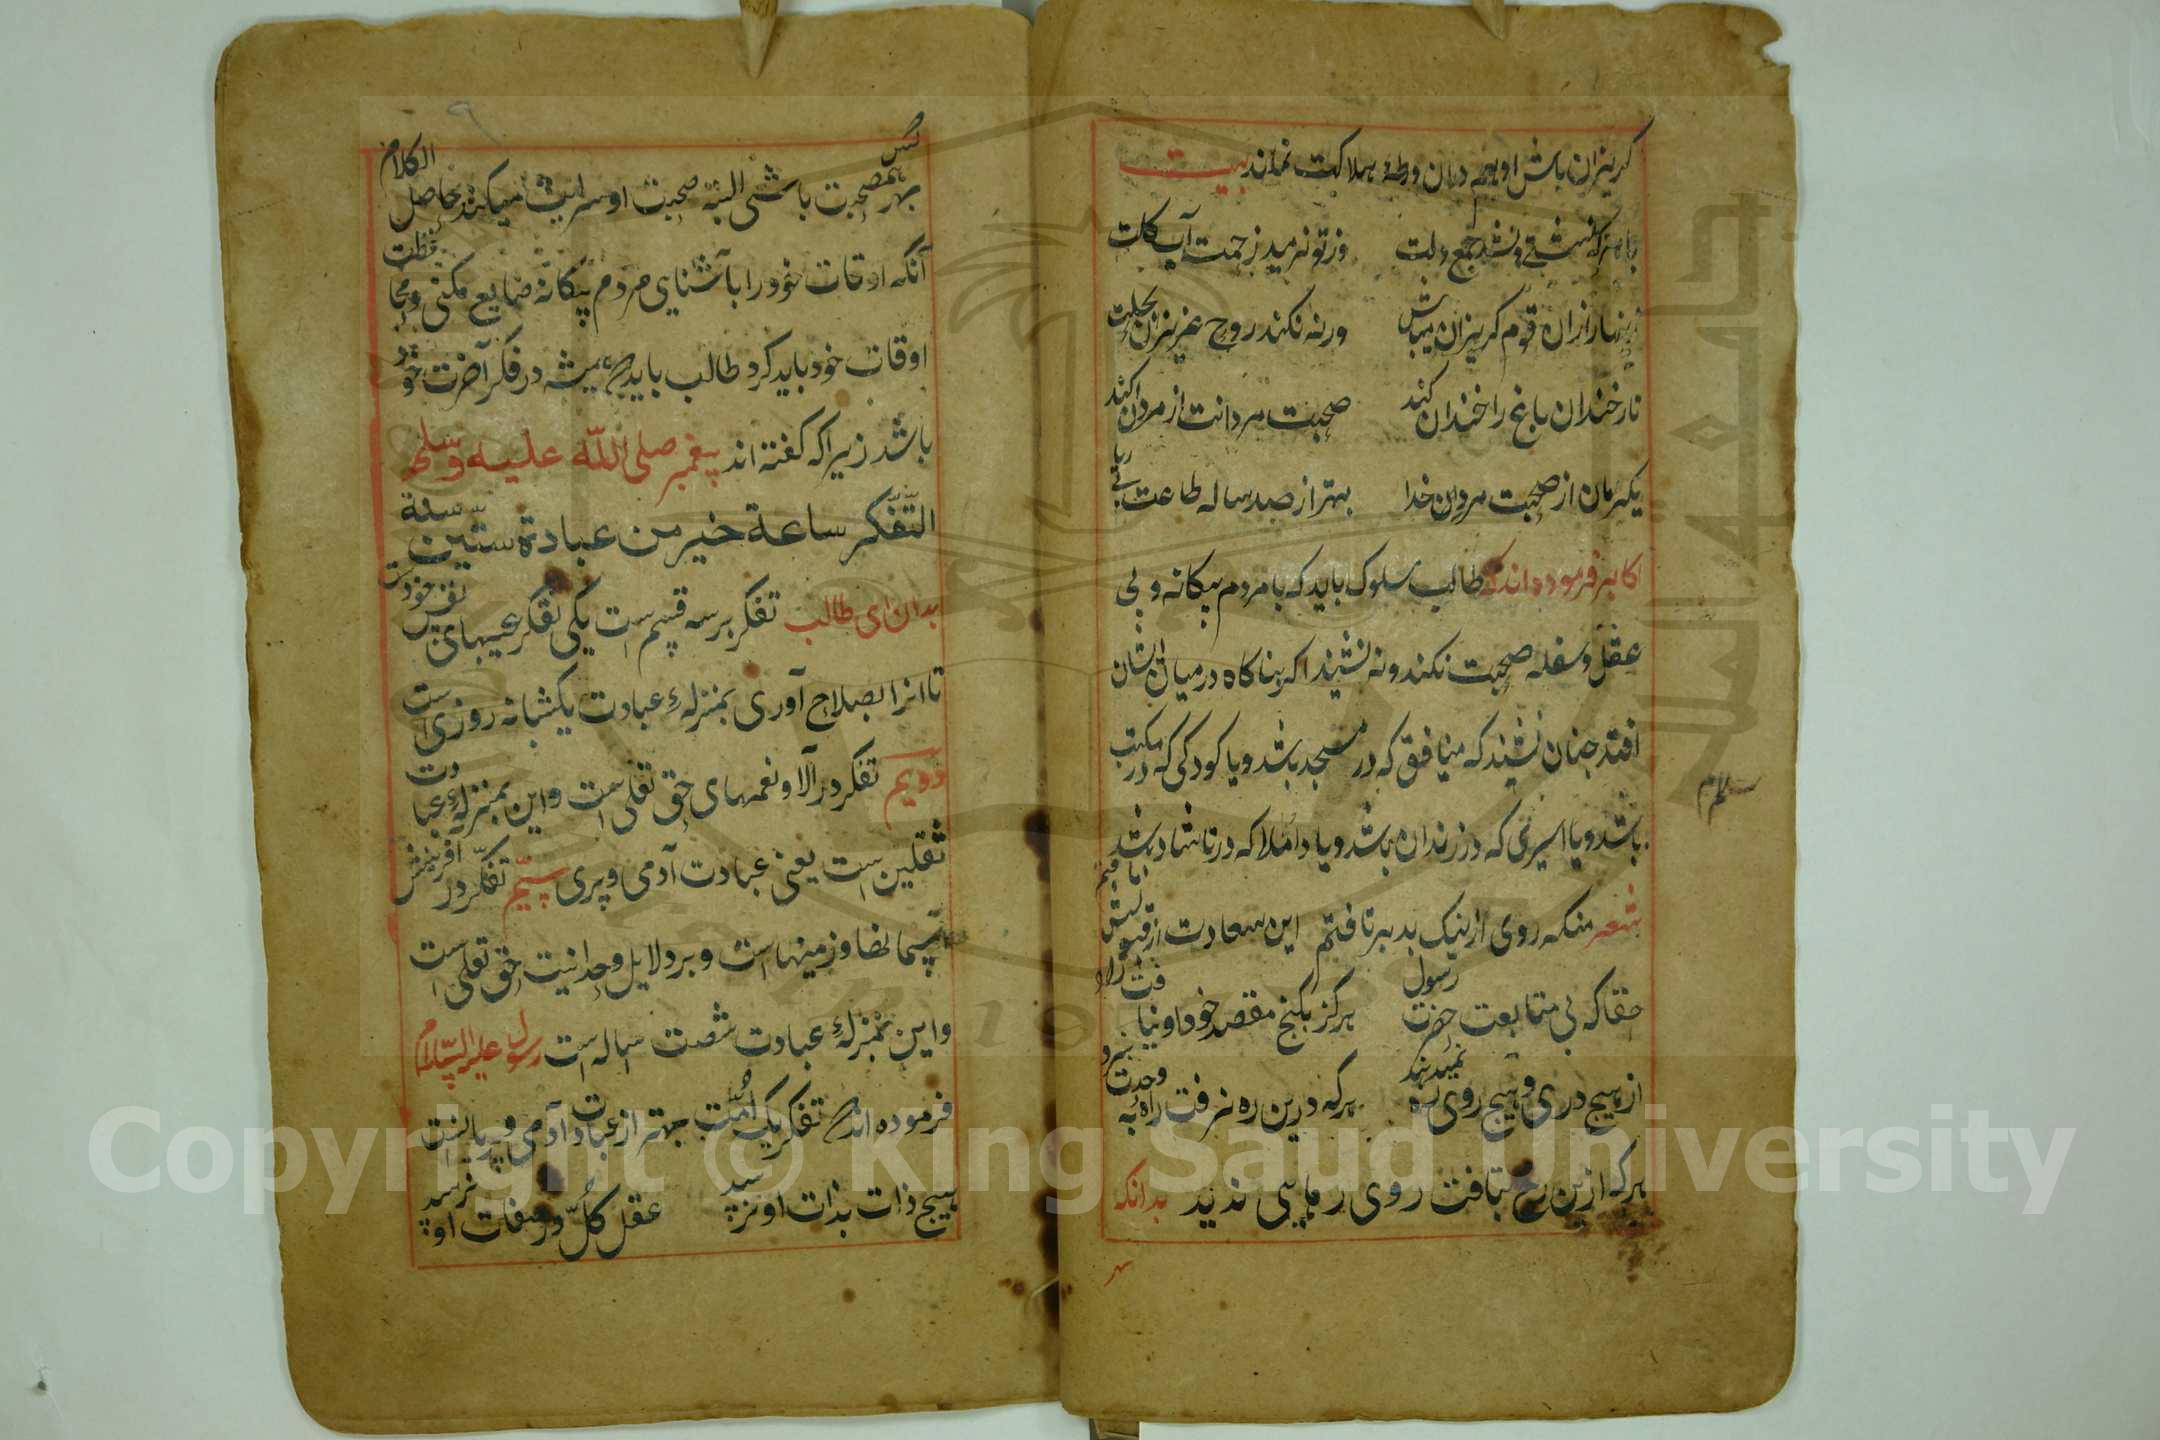 کریزان باش او همه دران ورطهٔ هلاکت نماند بیت
با هر که نشستی و نشد جمع دلت وز تو نرمید زحمت آب کلت
زینهار ازان قوم کریزان میباش ورنه نکند روح عزیزان بحلت
نار خندان باغ را خندان کند صحبت مردانت از مردان کند
یکزمان از صحبت مردان خدا بهتر از صد ساله طاعت بی ریا
اکابر فرموده اند که طالب سلوک باید که با مردم بیکانه و بی
عقل و سفله صحبت نکند و نه نشیند اکر بناکاه درمیان ایشان
افتد چنان نشیند که منافق که در مسجد باشد و یا کودکی که در مکتب
باشد و یا اسیری که در زندان باشد و یا داملا که در تماشا باشد
شعر منکه روی از نیک بد برتافتم این سعادت از قبولش یافتم
حقا که بی متابعت حضرت رسول هرکز بکنج مقصد خود اولیا
از هیچ دری و هیچ روی ره نمیدهند هرکه درین ره نرفت راه به وحدت نبرد
هرکه ازین رخ بتافت روی رهایی ندید بدانکه
سلام
بهر کس همصحبت باشی البته صحبت او سرایت میکند حاصل الکلام
آنکه اوقات خود را بآشنای مردم بیکانه ضایع مکنی و محافظت
اوقات خود باید کرد طالب باید که همیشه در فکر آخرت خود
باشد زیرا که کفته اند پیغمبر صلی الله علیه وسلم
التفکر ساعة خیر من عبادة ستین سنة
بدان ای طالب تفکر بر سه قسم است یکی تفکر عیبهای نفس خود است
تا انرا بصلاح آوری بمنزلهٔ عبادت یکشبانه روزی است
دویم تفکر در آلا و نعمهای حق تعلی است و این بمنزلهٔ عبادت
ثقلین است یعنی عبادت آدمی و پری سیم تفکر در آفرینش
آسمانها و زمینها است و بر دلایل وحدانیت حق تعلی است
و این بمنزلهٔ عبادت شصت ساله است رسول علیه السلام
فرموده اند که تفکر یک امت بهتر از عبادت آدمی و پریانست
هیچ ذات بذات او نرسید عقل کل در صفات او نرسد
٩
Copyright © King Saud University
1957